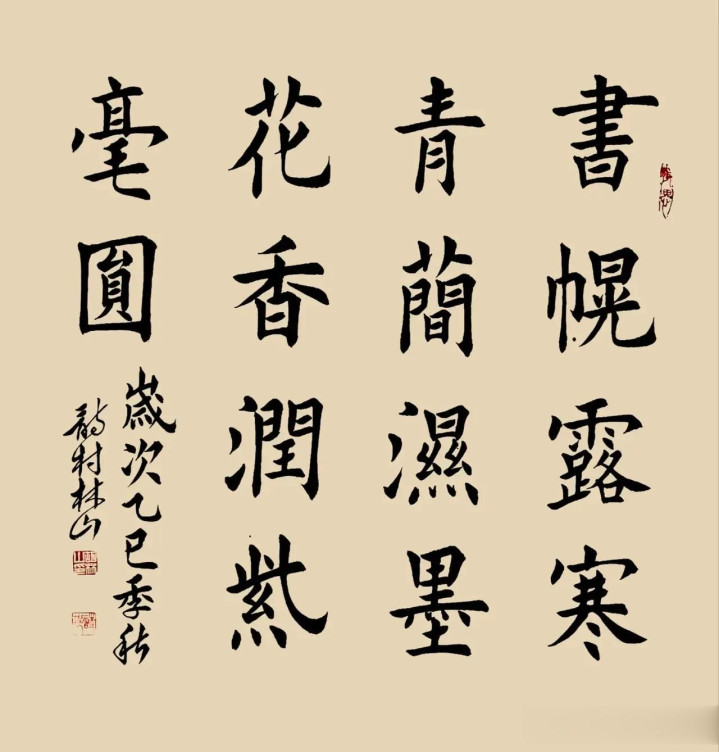 書幌露寒
青簡濕墨
花香潤紫
毫圓
歲次乙巳季秋
村林山